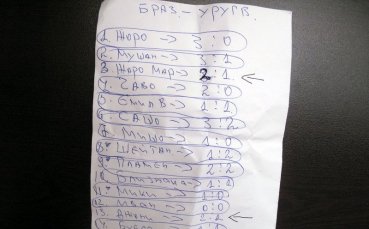 БРАЗ. - УРУГВ.
1. ЖОРО -> 3:0
2. МУШАН -> 3:1
3. ЖОРО МАР -> 2:1
4. САВО -> 2:0
5. 1:1
6. САШО -> 3:2
7. МИШО -> 1:0
8. ШЕЙТАН -> 1:2
9. ПЛАМЕН -> 2:2
10. БЛИЗНАКА -> 1:2
11. МИКИ -> 1:0
12. ИВАН -> 0:0
13. 2:1